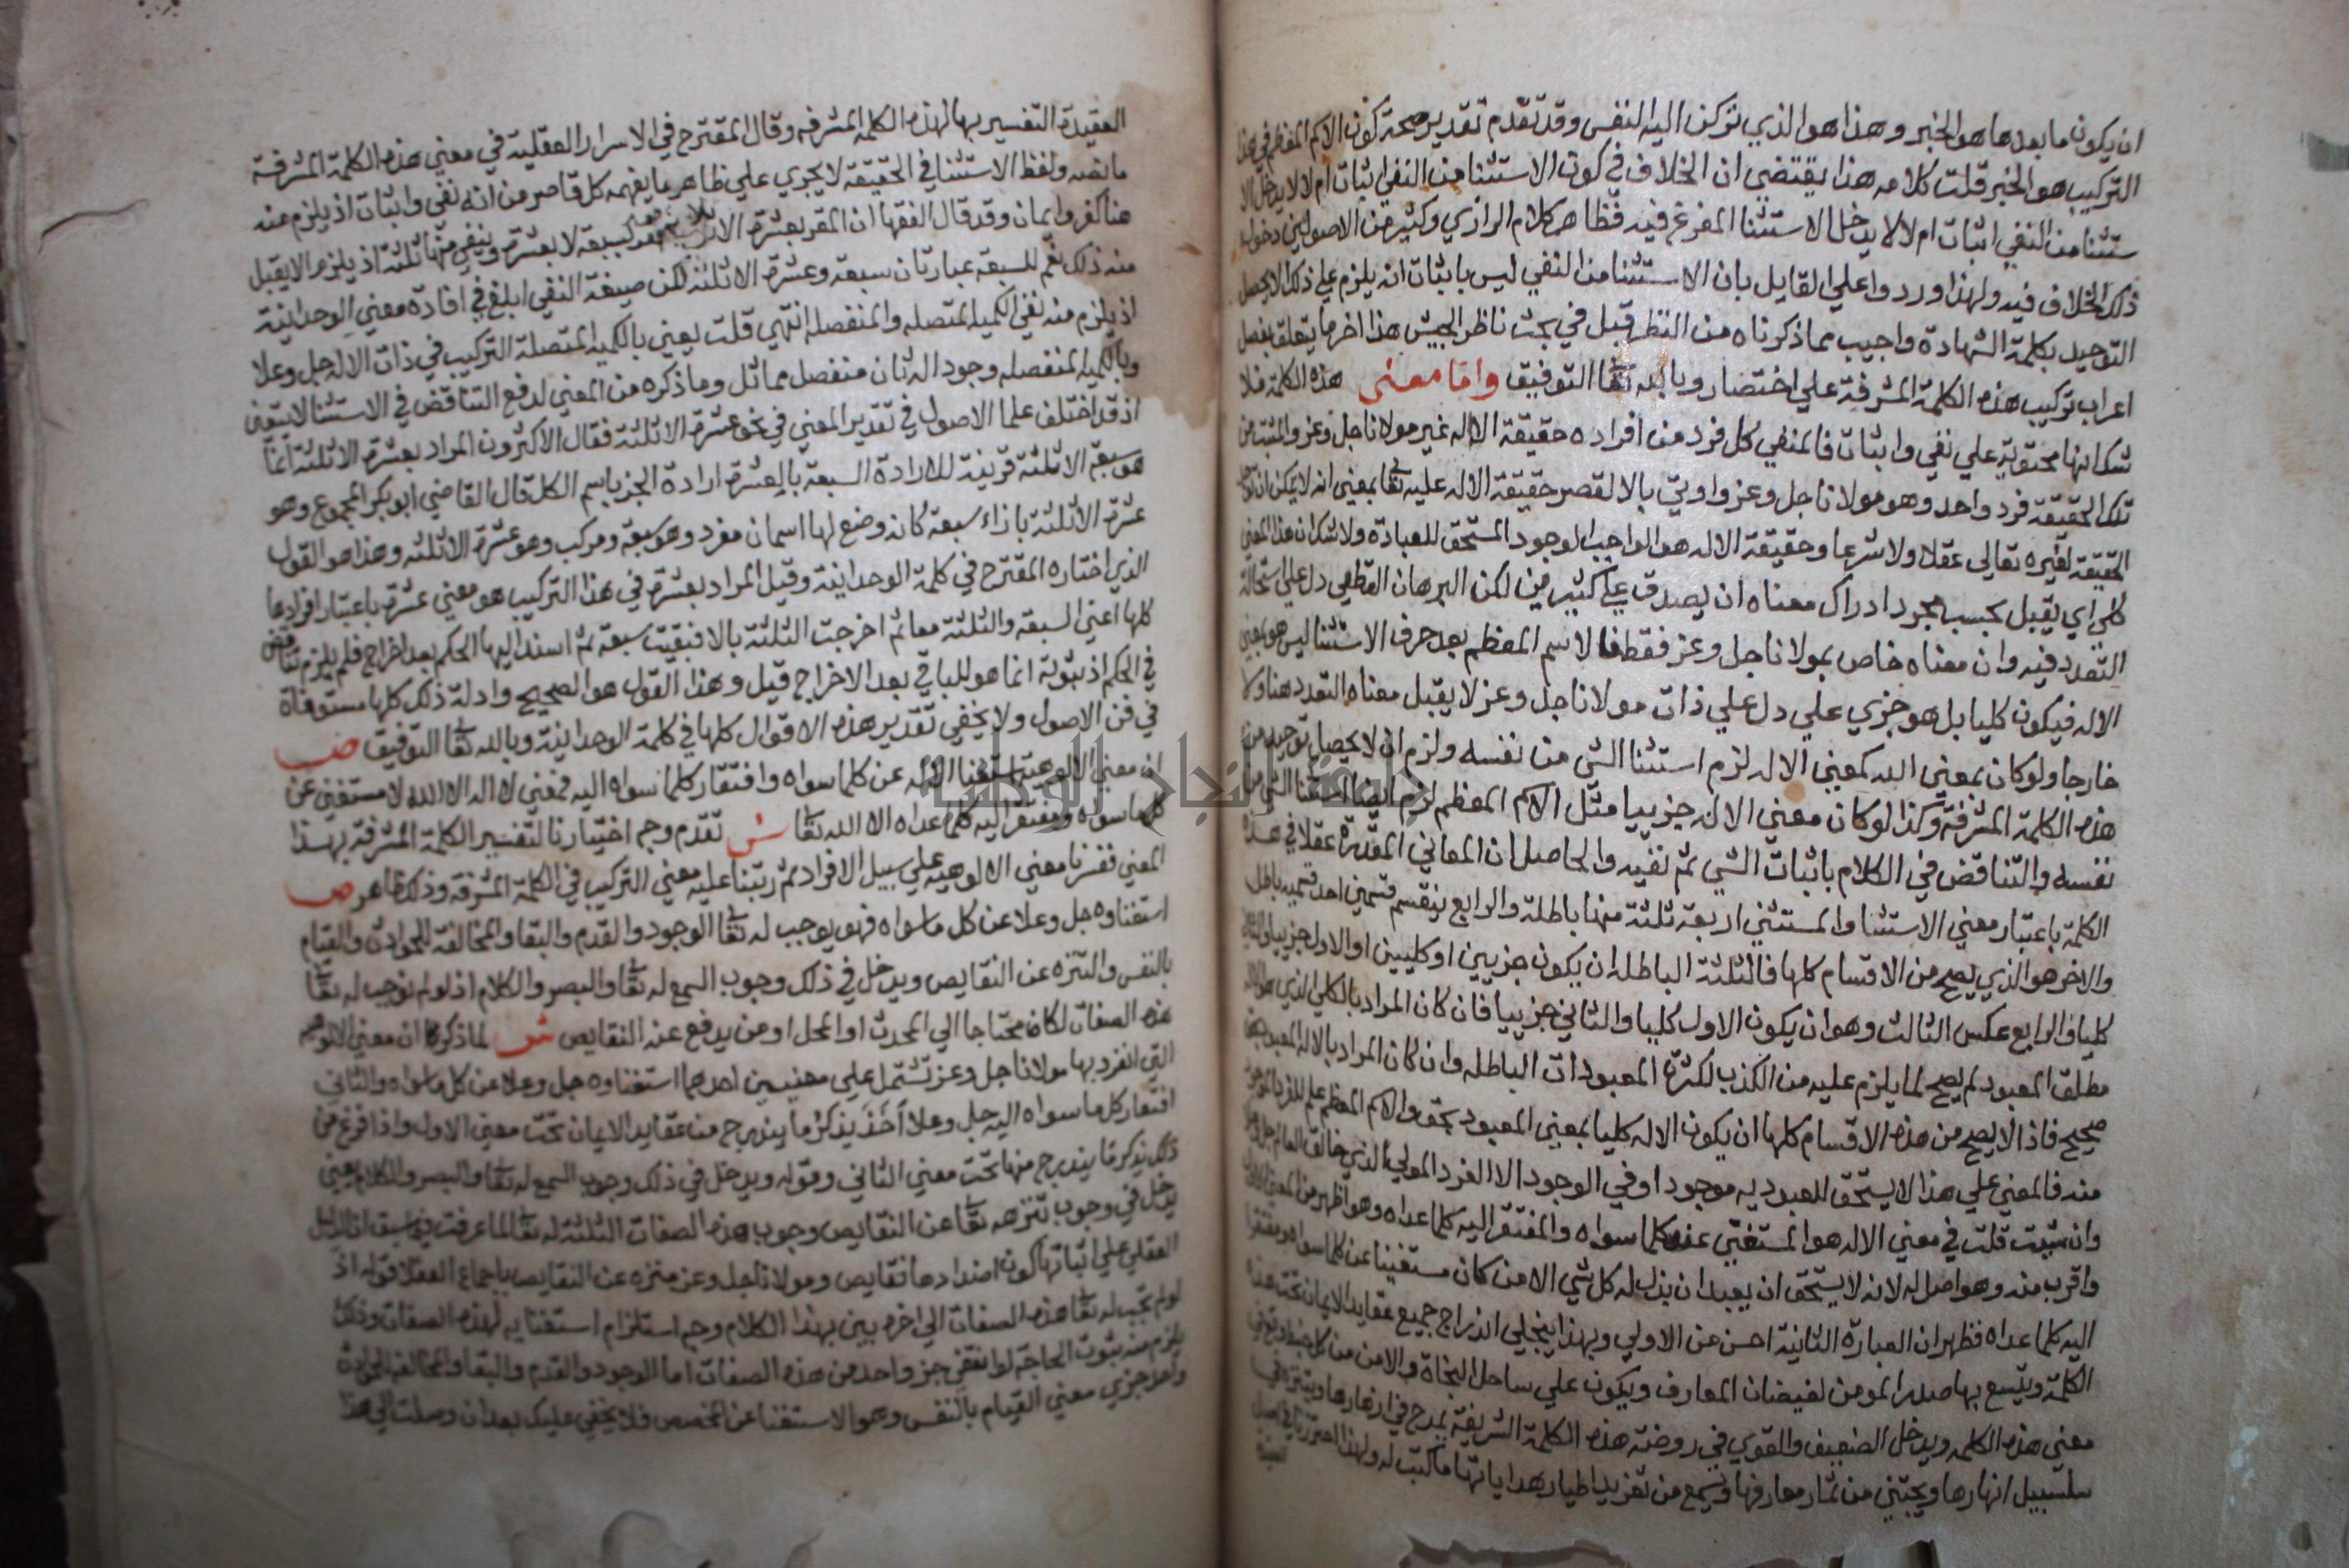 ان يكون ما بعدها هو الخبر وهذا هو الذي تركن اليه النفس وقد تقدم تقدير صحة كون الاسم المعظم في هذا
التركيب هو الخبر قلت كلامه هذا يقتضي ان الخلاف في كون الاستثنا من النفي اثبات ام لا لا يدخل الا
ستثنا من النفي اثبات ام لا لا يدخل الاستثنا المفرغ فيه فظاهر كلام الرازي وكثير من الاصوليين دخول
ذلك الخلاف فيه ولهذا وردوا علي القايل بان الاستثنا من النفي ليس باثبات انه يلزم علي ذلك الا يحصل
التوحيد بكلمة الشهادة واجيب مما ذكرناه من النظر قبل في بحث ناظر الجيش هذا اخر ما يتعلق بفصل
اعراب تركيب هذه الكلمة المشرفة علي اختصار وبالله تعا التوفيق واما معنى هذه الكلمة فلا
شك انها محتوية علي نفي واثبات فالمنفي كل فرد من افراده حقيقة الاله غير مولانا جل وعز والمثبت من
تلك الحقيقة فرد واحد وهو مولانا جل وعز واوتي بالا لقصر حقيقة الاله عليه تعا بمعني انه لا يمكن ان توجد
الحقيقة لغيره تعالي عقلا ولا شرعا وحقيقة الاله هو الواجب الوجود المستحق للعبادة ولا شك ان هذا المعني
كلي اي يقبل بحسب مجرد ادراك معناه ان يصدق علي كثيرين لكن البرهان القطعي دل علي استحالة
التعدد فيه وان معناه خاص بمولانا جل وعز فقط فالاسم المعظم بعد حرف الاستثنا ليس هو بمعني
الاله فيكون كليا بل هو جزي علي دل علي ذات مولانا جل وعز لا يقبل معناه التعدد هنا ولا
خارجا ولو كان بمعني الله كمعني الاله لزم استثنا الشي من نفسه ولزم ان لا يحصل توحيد من
هذه الكلمة المشرفة وكذا لو كان معني الاله جزييا مثل الاسم المعظم لزم ايضا استثنا الشي من
نفسه والتناقض في الكلام باثبات الشي ثم نفيه والحاصل ان المعاني المقدرة عقلا في هذه
الكلمة باعتبار معني الاستثنا والمستثني اربعة ثلثة منها باطلة والرابع ينقسم قسمين احد قسميه باطل
والاخر هو الذي يصح من الاقسام كلها فالثلثة الباطله ان يكون جزيين او كليين او الاول جزييا والثاني
كليا والرابع عكس الثالث وهو ان يكون الاول كليا والثاني جزييا فان كان المراد بالكلي الذي هو الاله
مطلق المعبود لم يصح لما يلزم عليه من الكذب لكثرة المعبودات الباطله وان كان المراد بالاله المعبود بحق
صحيح فاذا لا يصح من هذه الاقسام كلها ان يكون الاله كليا بمعني المعبود بحق والاسم المعظم علم للفرد الموجود
منه فالمعني علي هذا لا يستحق للعبوديه موجود او في الوجود الا الفرد المولي الذي خالق العالم جل وعلا
وان شيت قلت في معني الاله هو المستغني عن كلما سواه والمفتقر اليه كلما عداه وهو اظهر من المعني الاول
واقرب منه وهو اصل له لانه لا يستحق ان يعبد ان يذل له كل شي الا من كان مستغنيا عن كلما سواه ويفتقر
اليه كلما عداه فظهر ان العبارة الثانية احسن من الاولي وبهذا ينجلي اندراج جميع عقايد الايمان تحت هذه
الكلمة ويتسع بها صدر المومن لفيضان المعارف ويكون علي ساحل النجاة والامن من كل
معني هذه الكلمه ويدخل الضعيف والقوي في روضة هذه الكلمة الشريفة يمرح في ازهارها ويتنزه في
سلسبيل انهارها ويجتني من ثمار معارفها ويسمع من تغريد اطيار هداياتها ما كتب له ولهذا
العقيدة التفسير بها لهذه الكلمة المشرفه وقال المقترح في الاسرار العقلية في معني هذه الكلمة المشرفة
ما نصه ولفظ الاستثنا في الحقيقة لا يجري علي ظاهر ما يفهمه كل قاصر من انه نفي واثبات اذ يلزم منه
هنا كفر وايمان وقد قال الفقها ان المقر بعشرة الا ثلثة مقر بسبعة لا بعشرة وينفي منها ثلثة اذ يلزم الا يقبل
منه ذلك نعم للسبعة عبارتان سبعة وعشرة الا ثلثة لكن صيغة النفي ابلغ في افادة معني الوحدانية
اذ يلزم منه نفي الكميه المتصله والمنفصله انتهي قلت يعني بالكميه المتصلة التركيب في ذات الاله جل وعلا
وبالكميه المنفصله وجود اله ثان منفصل مماثل وما ذكره من المعني لدفع التناقض في الاستثنا لا يتعين
اذ قد اختلف علما الاصول في تقدير المعني في نحو عشرة الا ثلثة فقال الاكثرون المراد بعشرة الا ثلثة انما
هو سبعة الا ثلثة قرينة للارادة السبعة بالعشرة ارادة الجز باسم الكل قال القاضي ابو بكر المجموع وهو
عشرة الا ثلثة بازاء سبعة كانه وضع لها اسمان مفرد وهو سبعة ومركب وهو عشرة الا ثلثه وهذا هو القول
الذي اختاره المقترح في كلمة الوحدانية وقيل المراد بعشرة في هذا التركيب هو معني عشرة باعتبار افرادها
كلها اعني السبعة والثلثة معا ثم اخرجت الثلثة بالا فبقيت سبعة ثم اسند اليها الحكم بعد اخراج فلم يلزم تناقض
في الحكم اذ ثبوته انما هو للباقي بعد الاخراج قيل وهذا القول هو الصحيح وادلة ذلك كلها مستوفاة
في فن الاصول ولا يخفي تقدير هذه الاقوال كلها في كلمة الوحدانية وبالله تعا التوفيق ص
ان معني الالوهية استغنا الاله عن كلما سواه وافتقار كلما سواه اليه فمعني لا اله الا الله لا مستغني عن
كلما سواه ومفتقرا اليه كلما عداه الا الله تعا ش تقدم وجه اختيارنا لتفسير الكلمة المشرفة بهذا
المعني ففسرنا معني الالوهيه علي سبيل الافراد ثم رتبنا عليه معني التركيب في الكلمة المشرفه وذلك ظاهر ص
استغناوه جل وعلا عن كل ما سواه فهو يوجب له تعا الوجود والقدم والبقا والمخالفة للحوادث والقيام
بالنفس والتنزه عن النقايص ويدخل في ذلك وجوب السمع له تعا والبصر والكلام اذ لو لم توجب له تعا
هذه الصفات لكان محتاجا الي المحدث او المحل او من يدفع عنه النقايص ش لما ذكر ان معني الالوهيه
التي انفرد بها مولانا جل وعز تشتمل علي معنيين احدهما استغناوه جل وعلا عن كل ما سواه والثاني
افتقار كل ما سواه اليه جل وعلا اخذ يذكر ما يندرج من عقايد الايمان تحت معني الاول واذا فرغ من
ذلك يذكر ما يندرج منها تحت معني الثاني وقوله ويدخل في ذلك وجوب السمع له تعا والبصر والكلام يعني
يدخل في وجوب تنزهه تعا عن النقايص وجوب هذه الصفات الثلثة له تعا لما عرفت فيما سبق ان الدليل
العقلي علي اثباتها كون اضدادها نقايص ومولانا جل وعز منزه عن النقايص باجماع العقلا قوله اذ
لو لم تجب له تعا هذه الصفات الي اخره بين بهذا الكلام وجه استلزام استغنايه لهذه الصفات وذلك
يلزم منه ثبوت الحاجة لو انتفي جز واحد من هذه الصفات اما الوجود والقدم والبقا والمخالفة للحوادث
واحد جزي معني القيام بالنفس وهو الاستغنا عن المخصص فلا يخفي عليك بعد ان وصلت الي هذا
جامعة النجاح الوطنية